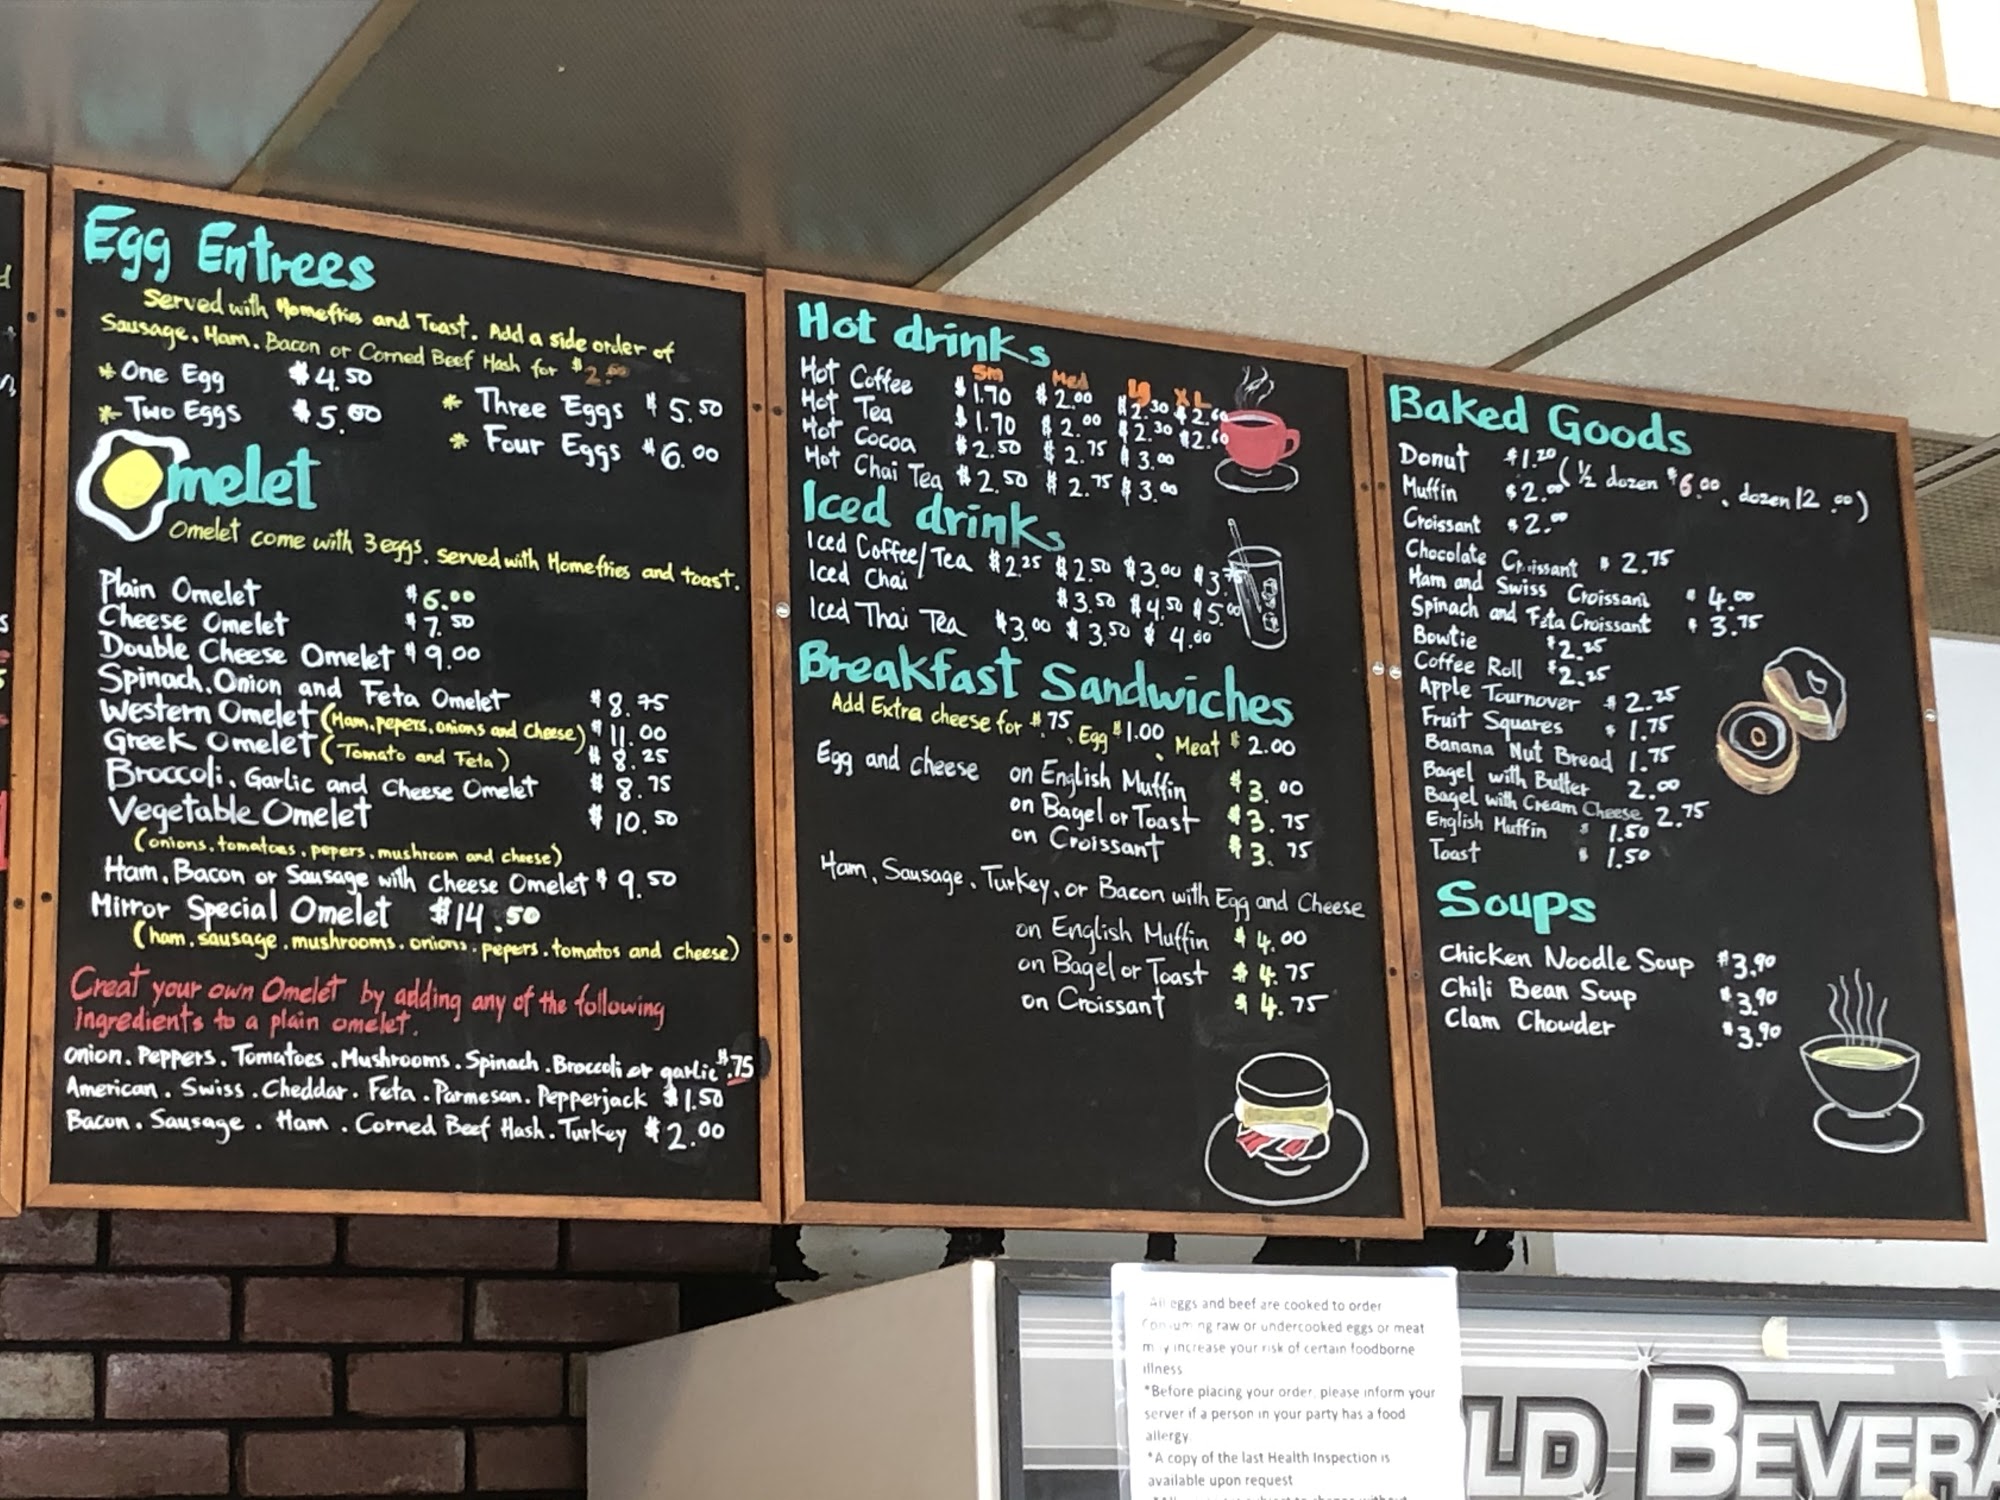 Egg Entrees
Served with Homefries and Toast. Add a side order of
Sausage, Ham, Bacon or Corned Beef Hash for $2.00
*One Egg $4.50
*Two Eggs $5.00
* Three Eggs $5.50
* Four Eggs $6.00
Omelet
Omelet come with 3 eggs, served with Homefries and toast.
Plain Omelet $6.00
Cheese Omelet $7.50
Double Cheese Omelet $9.00
Spinach, Onion and Feta Omelet $8.75
Western Omelet (Ham, pepers, onions and Cheese) $11.00
Greek Omelet (Tomato and Feta) $8.25
Broccoli, Garlic and Cheese Omelet $8.75
Vegetable Omelet $10.50
(onions, tomatoes, pepers, mushroom and cheese)
Ham, Bacon or Sausage with Cheese Omelet $9.50
Mirror Special Omelet $14.50
(ham, sausage, mushrooms, onions, pepers, tomatos and cheese)
Creat your own Omelet by adding any of the following
ingredients to a plain omelet.
Onion. Peppers. Tomatoes. Mushrooms. Spinach. Broccoli or garlic $.75
American. Swiss. Cheddar. Feta. Parmesan. Pepperjack $1.50
Bacon. Sausage. Ham. Corned Beef Hash. Turkey $2.00
Hot drinks
Sm Med Lg XL
Hot Coffee $1.70 $2.00 $2.30 $2.60
Hot Tea $1.70 $2.00 $2.30 $2.60
Hot Cocoa $2.50 $2.75 $3.00
Hot Chai Tea $2.50 $2.75 $3.00
Iced drinks
Iced Coffee/Tea $2.25 $2.50 $3.00
Iced Chai $3.50 $4.50 $5.00
Iced Thai Tea $3.00 $3.50 $4.00
Breakfast Sandwiches
Add Extra cheese for $.75, Egg $1.00, Meat $2.00
Egg and cheese on English Muffin $3.00
on Bagel or Toast $3.75
on Croissant $3.75
Ham, Sausage, Turkey, or Bacon with Egg and Cheese
on English Muffin $4.00
on Bagel or Toast $4.75
on Croissant $4.75
Baked Goods
Donut $1.20 (½ dozen $6.00, dozen 12.00)
Muffin $2.00
Croissant $2.00
Chocolate Croissant $2.75
Ham and Swiss Croissant $4.00
Spinach and Feta Croissant $3.75
Bowtie $2.25
Coffee Roll $2.25
Apple Tournover $2.25
Fruit Squares $1.75
Banana Nut Bread 1.75
Bagel with Butter 2.00
Bagel with Cream Cheese 2.75
English Muffin $1.50
Toast $1.50
Soups
Chicken Noodle Soup $3.90
Chili Bean Soup $3.90
Clam Chowder $3.90
All eggs and beef are cooked to order
Consuming raw or undercooked eggs or meat
may increase your risk of certain foodborne
illness
*Before placing your order, please inform your
server if a person in your party has a food
allergy
*A copy of the last Health Inspection is
available upon request
LD BEVERA